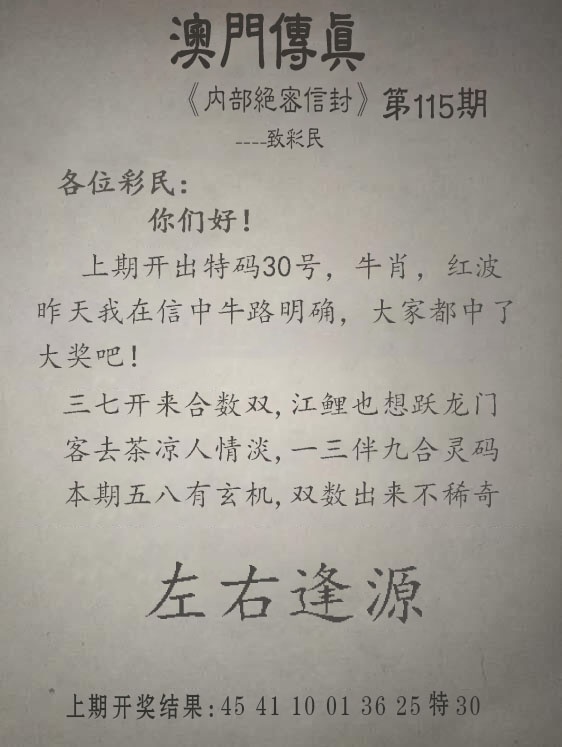 澳門傳真
《内部絕密信封》第115期
----致彩民
各位彩民：
你们好！
上期开出特码30号，牛肖，红波
昨天我在信中牛路明确，大家都中了
大奖吧！
三七开来合数双,江鲤也想跃龙门
客去茶凉人情淡,一三伴九合灵码
本期五八有玄机,双数出来不稀奇
左右逢源
上期开奖结果:45 41 10 01 36 25特30